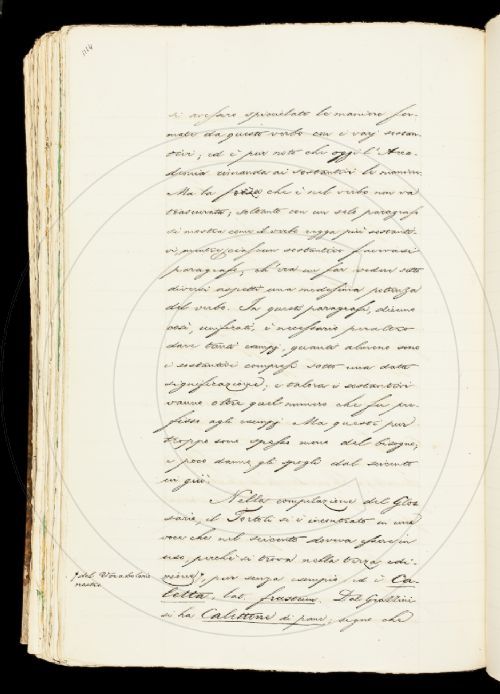 1164
si avessero spicciolato le maniere for-
mate da questo verbo con i varj sostan-
tivi; ed è pur noto che oggi l'Acca-
demia rimanda ai sostantivi le maniere.
Ma la forza che è nel verbo non va
trascurata; soltanto con un solo paragrafo
si mostra come il verbo regga più sostanti-
vi, mentre ciascun sostantivo
paragrafi, ch'era un far vedere sotto
diversi aspetti una medesima potenza
del verbo. In questi paragrafi, diremo
così, è necessario peraltro
dare tanti esempj, quanti almeno sono
i sostantivi compresi sotto una data
significazione; e talora i sostantivi
vanno oltre quel numero che fu pre-
fisso agli esempj. Ma questi pur
troppo sono spesso meno del bisogno;
e poco danno gli spogli dal seicento
in giù.
Nella compilazione del Glos-
sario, il Tortoli si è incontrato in una
voce che nel seicento doveva essere in
uso, perchè si trova nella terza edi-
zione, pur senza esempio, ed è Ca-
del Vocabolario
nostro
letta, lat. frustum. Del Grazzini
si ha Calettine di pane; segno che